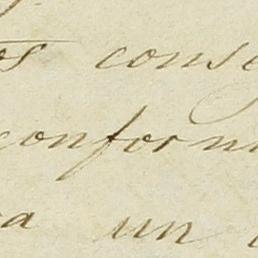 os conse
conform
ra un